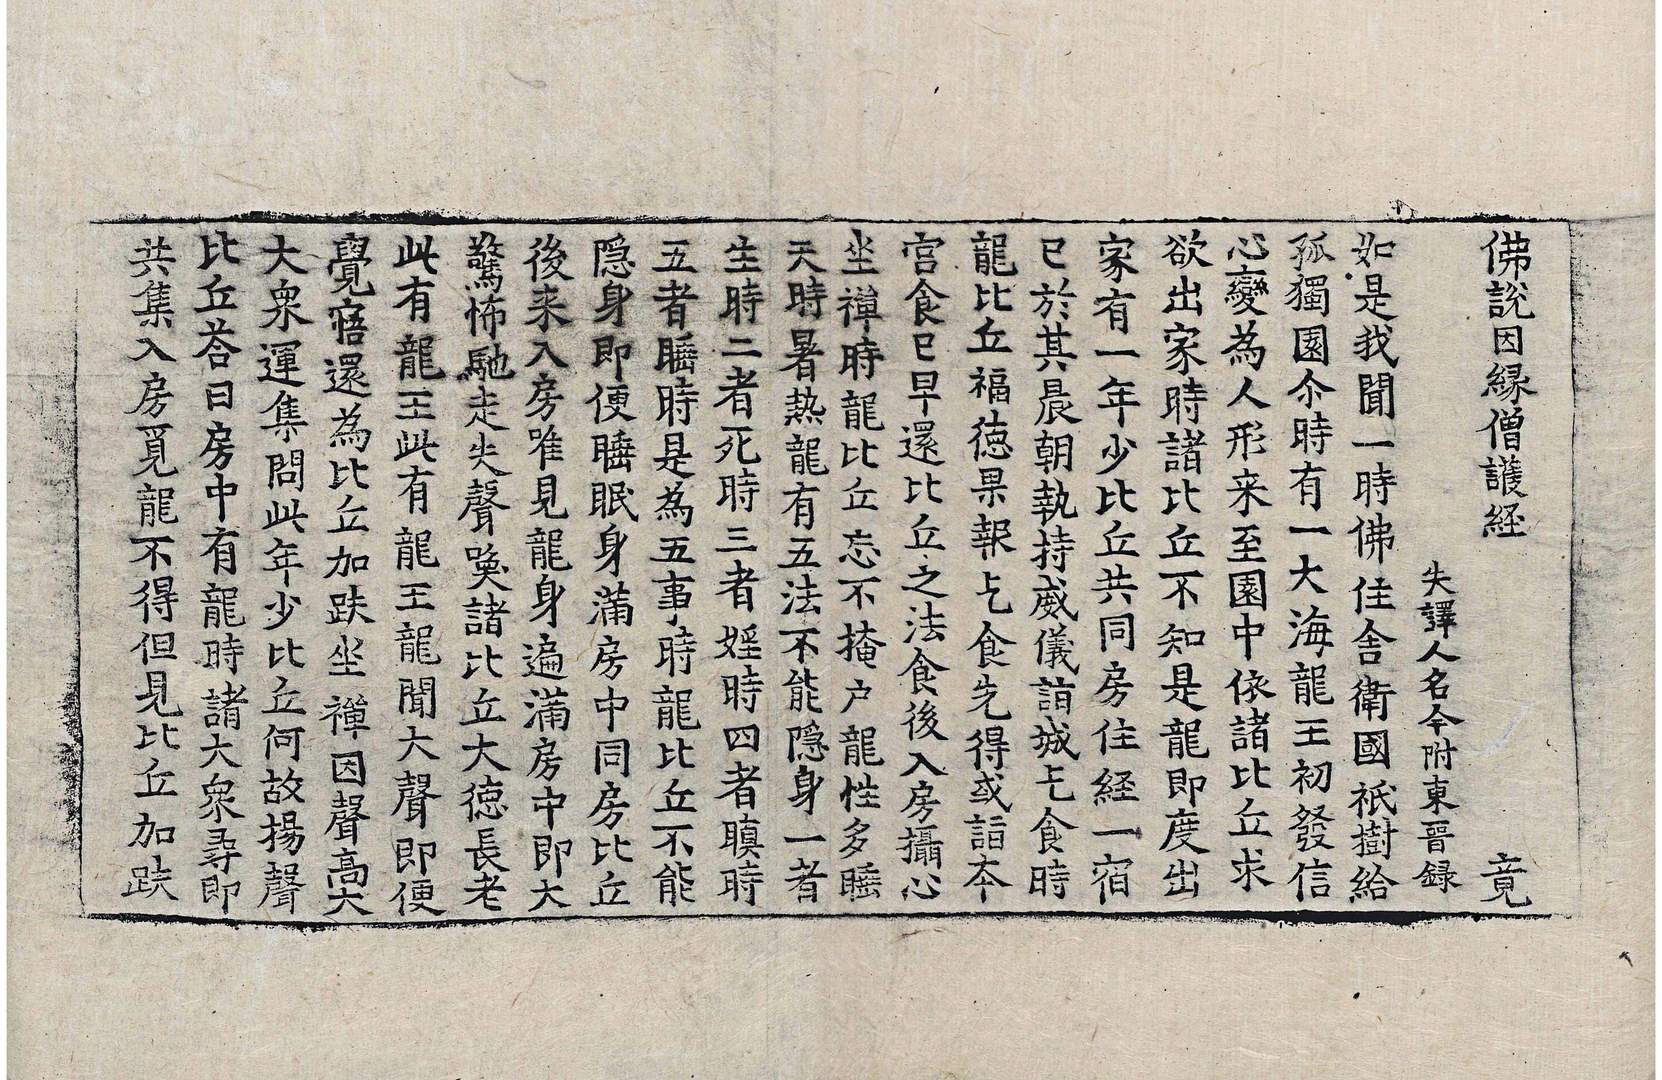 佛說因緣僧護経　竟
失譯人名今附東晉録
如是我聞一時佛住舍衛國祇樹給
孤獨園尒時有一大海龍王初發信
心變為人形来至園中依諸比丘求
欲出家時諸比丘不知是龍即度出
家有一年少比丘共同房住経一宿
已於其晨朝執持威儀詣城乞食時
龍比丘福德果報乞食先得或詣本
宮食已早還比丘之法食後入房攝心
坐禪時龍比丘忘不掩户龍性多睡
天時暑熱龍有五法不能隱身一者
生時二者死時三者婬時四者瞋時
五者睡時是為五事時龍比丘不能
隱身即便睡眠身滿房中同房比丘
後来入房唯見龍身遍滿房中即大
驚怖馳走失聲喚諸比丘大德長老
此有龍王此有龍王龍聞大聲即便
覺寤還為比丘加趺坐禪因聲高大
大衆運集問此年少比丘何故揚聲
比丘荅曰房中有龍時諸大衆尋即
共集入房覓龍不得但見比丘加趺